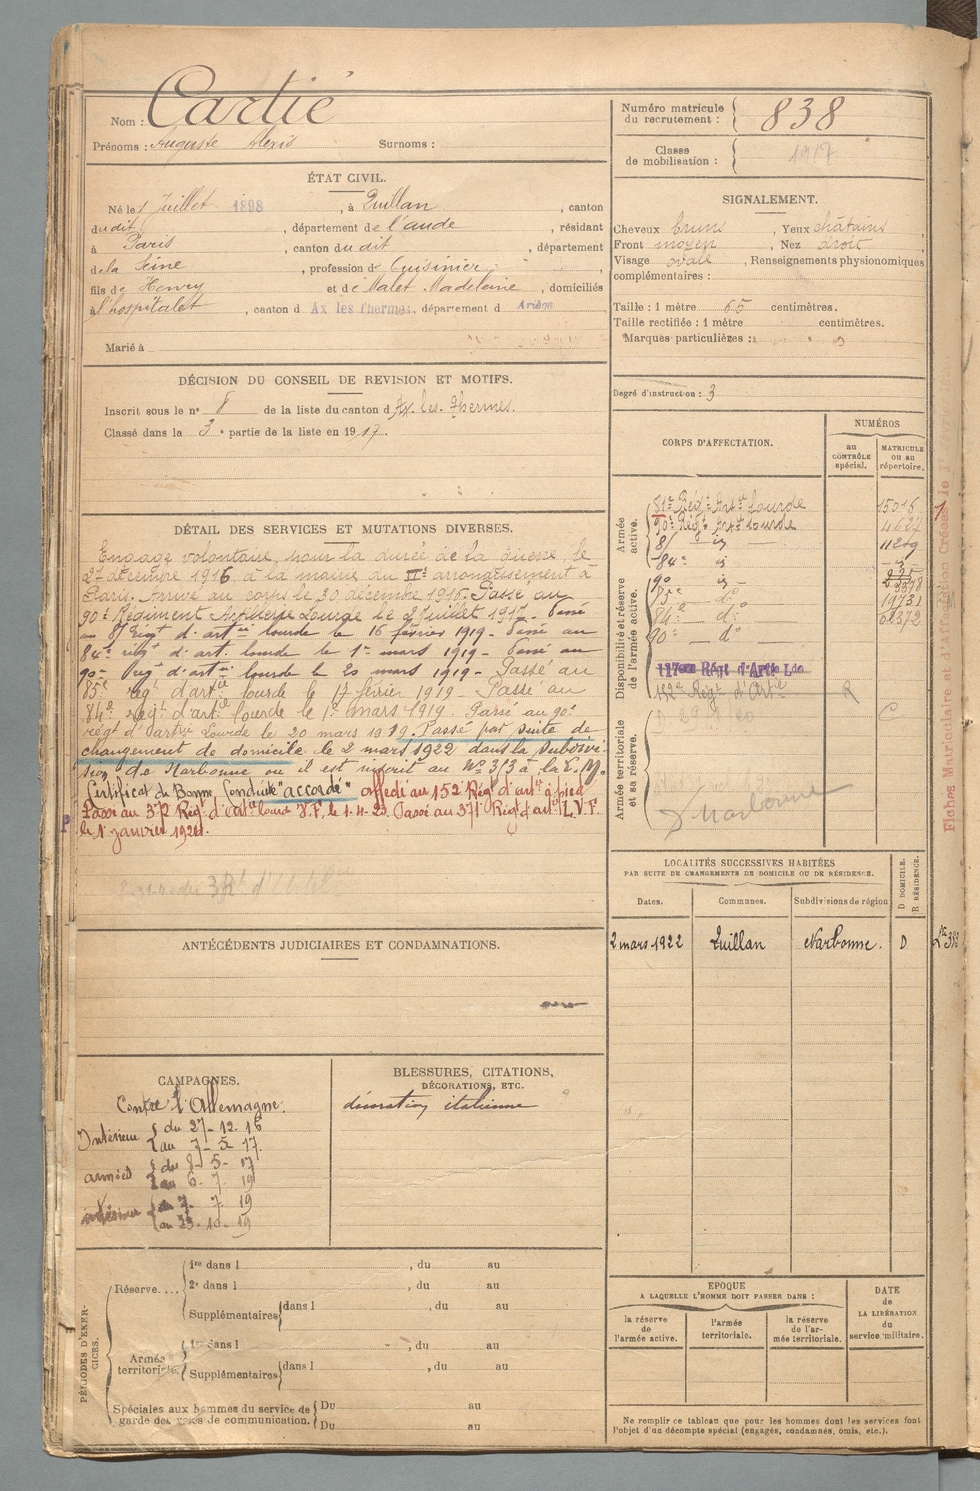 Nom : Cartié
Prénoms : Auguste Alexis Surnoms :
ÉTAT CIVIL.
Né le 1 Juillet 1898, à Quillan, canton
du dit, département de l'aude, résidant
à Paris, canton du dit, département
de la Seine, profession de Cuisinier
fils de Henry et de Malet Madeleine, domiciliés
à l'hospitalet, canton d Ax les Thermes, département d Ariège
Marié à
DÉCISION DU CONSEIL DE REVISION ET MOTIFS.
Inscrit sous le n° 8 de la liste du canton d'Ax-les-Thermes.
Classé dans la 3e partie de la liste en 1917.
DÉTAIL DES SERVICES ET MUTATIONS DIVERSES.
Engagé volontaire pour la durée de la guerre, le
27 décembre 1916, à la mairie du II° arrondissement à
Paris. Arrivé au corps le 30 décembre 1916. Passé au
90e Régiment Artillerie Lourde le 2 Juillet 1917. Passé
au 8 régt d'artie lourde le 16 février 1919 - Passé au
84e régt d'art. lourde le 1er mars 1919 - Passé au
90e Régt d'artie lourde le 20 mars 1919 - Passé au
85e régt d'artie lourde le 17 février 1919 - Passé au
84e régt d'artie lourde le 1er mars 1919. Passé au 90e
régt d'artie Lourde le 20 mars 1919. Passé par suite de
changement de domicile le 2 mars 1922 dans la subdivi-
sion de Narbonne où il est inscrit au N° 313 à la L.M.
Certificat de Bonne Conduite "accordé" affecté au 152 Régt d'artie à pied
Passé au 372 Régt d'artie lourde V.F. le 1.4.23. Passé au 371 Régt d'artie L.V.F.
le 1er janvier 1924.
ANTÉCÉDENTS JUDICIAIRES ET CONDAMNATIONS.
CAMPAGNES.
Contre l'Allemagne.
Intérieur { du 27-12-16
au 7-5-17.
armées { du 8-5-17
au 6-7-19
intérieur { du 7-7-19
au 23-10-19
BLESSURES, CITATIONS,
DÉCORATIONS, ETC.
décoration italienne
PÉRIODES D'EXER-
CICES.
Réserve....
1re dans l , du au
2e dans l , du au
Supplémentaires {dans l , du au
Armée
territoriale.
1re dans l , du au
Supplémentaires {dans l , du au
Spéciales aux hommes du service de
garde des voies de communication.
Du au
Du au
Numéro matricule
du recrutement : 838
Classe
de mobilisation : 1917
SIGNALEMENT.
Cheveux bruns, Yeux châtains,
Front moyen, Nez droit,
Visage ovale, Renseignements physionomiques
complémentaires :
Taille : 1 mètre 65 centimètres.
Taille rectifiée : 1 mètre centimètres.
Marques particulières :
Degré d'instruction : 3
CORPS D'AFFECTATION.
NUMÉROS
au
CONTRÔLE
spécial.
MATRICULE
OU AU
répertoire.
Armée
active.
81e Régt Art. Lourde 15016
90e Régt Art. Lourde
84e id
90 id -
Disponibilité et réserve
de l'armée active.
84e d°
90e d°
117ème Régt d'Artie Lde
Régt d'Artie R
C
Armée territoriale
et sa réserve.
Narbonne
Fiches Matriculaire et d'Affectation Créées le 1
LOCALITÉS SUCCESSIVES HABITÉES
PAR SUITE DE CHANGEMENTS DE DOMICILE OU DE RÉSIDENCE.
Dates. Communes. Subdivisions de région
D DOMICILE.
R RÉSIDENCE.
2 mars 1922 Quillan Narbonne. D
EPOQUE
A LAQUELLE L'HOMME DOIT PASSER DANS :
la réserve
de
l'armée active.
l'armée
territoriale.
la réserve
de l'ar-
mée territoriale.
DATE
de
LA LIBÉRATION
du
service militaire.
Ne remplir ce tableau que pour les hommes dont les services font
l'objet d'un décompte spécial (engagés, condamnés, omis, etc.).